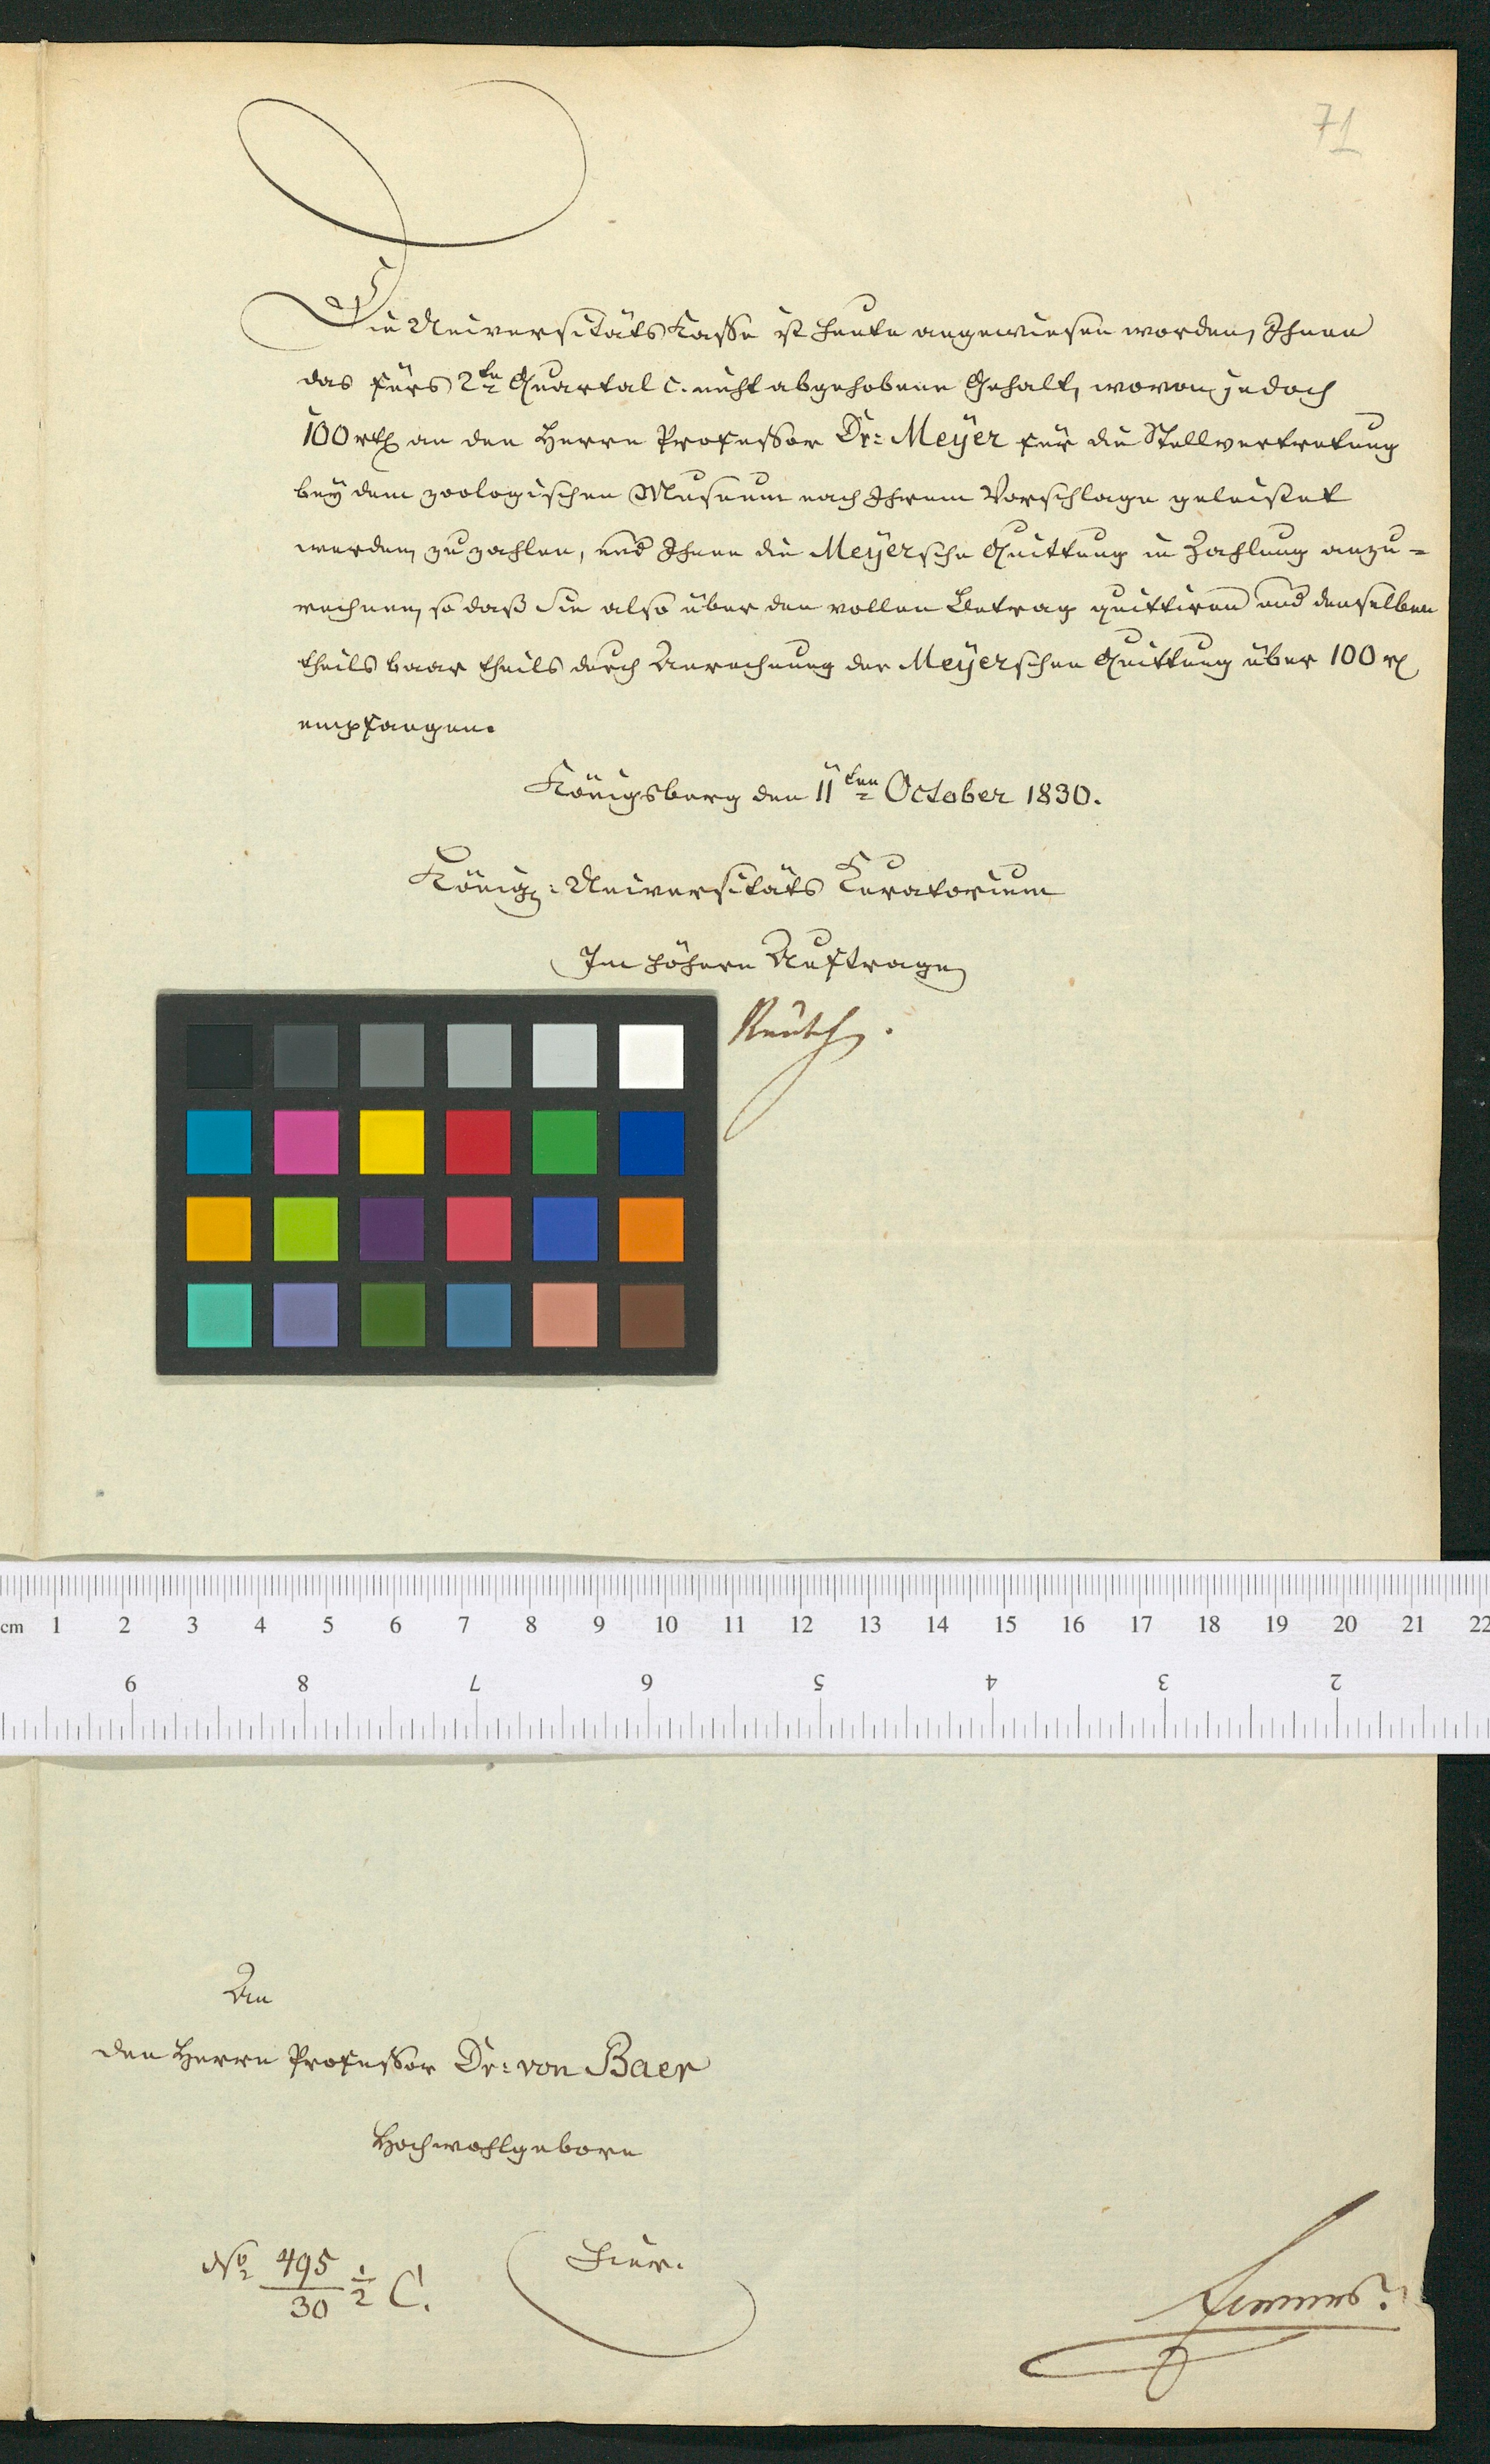 71
Die Universitäts Kasse ist heute angewiesen worden, Ihnen
das fürs 2te Quartal c. nicht abgehobene Gehalt, wovon jedoch
100 rtl an den Herrn Professor Dr: Meyer für die Stellvertretung
bey dem zoologischen Museum nach Ihrem Vorschlage geleistet
werden, zu zahlen, und Ihnen die Meyersche Quittung in Zahlung anzu=
rechnen, so daß Sie also über den vollen Betrag quittiren und denselben
theils baar theils durch Anrechnung der Meyerschen Quittung über 100 rl
empfangen.
Königsberg den 11ten October 1830.
Königl: Universitäts Curatorium
Im höhern Auftrage
Reusch.
cm 1 2 3 4 5 6 7 8 9 10 11 12 13 14 15 16 17 18 19 20 21 22
9 8 7 6 5 4 3 2
An
den Herrn Professor Dr: von Baer
Hochwohlgeborn
Hier.
No 495/30 1/2 C.